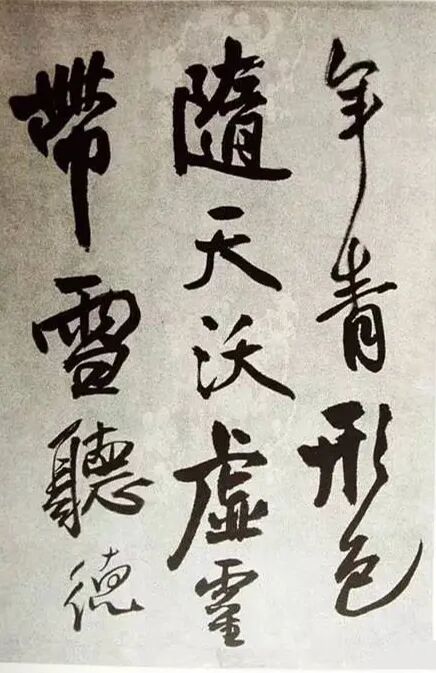 年青形色
隨天沃虛靈
帶雪聽德